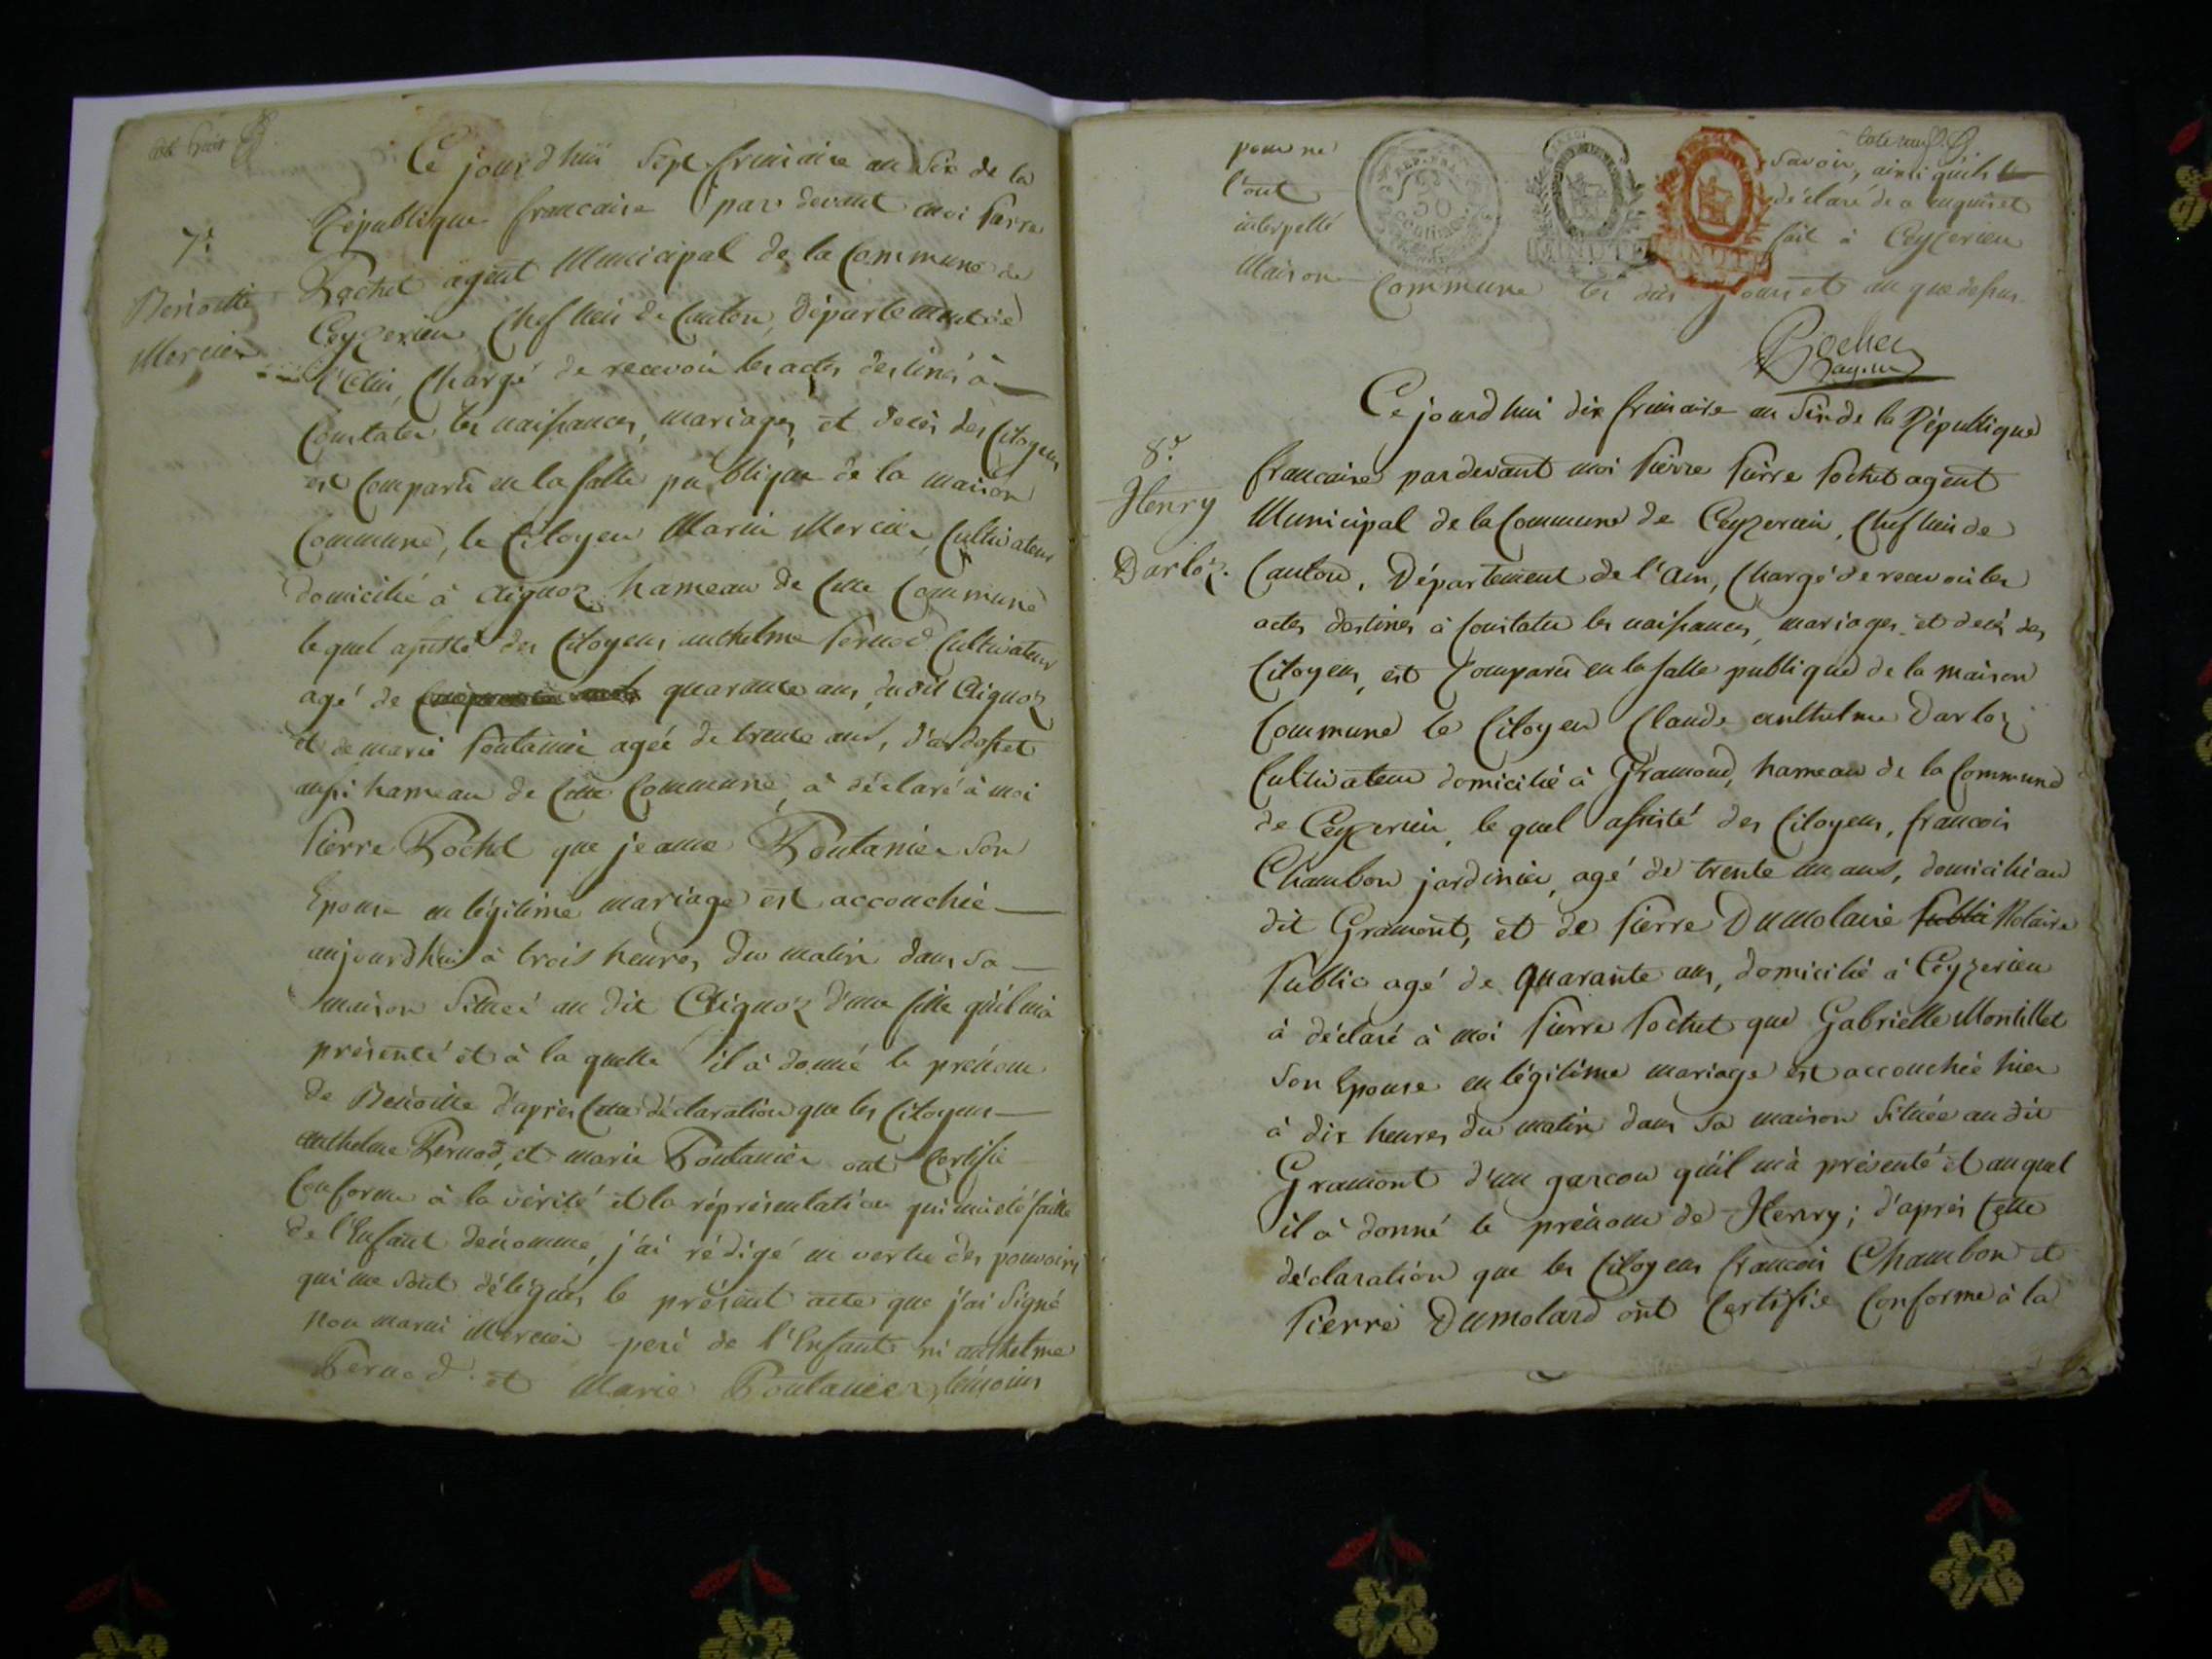 Ce jourd'hui sept frimaire an Six de la
République francaise par devant moi Pierre
Pochet agent Municipal de la Commune de
Ceyzerieu Chef lieu de Canton, Département de
l'Ain, Chargé de recevoir les actes destinés à
Constater les naissances, mariages, et décès des Citoyens
est Comparû en la salle publique de la maison
Commune, le Citoyen Marin Mercier, Cultivateur
domicilié à Aignoz hameau de cette Commune
lequel assisté des Citoyens anthelme Pernod Cultivateur
agé de quarante ans, dudit Aignoz
et de marie Poutanier agée de trente ans, d'ardosset
aussi hameau de cette Commune, à déclaré à moi
Pierre Pochet que jeanne Poutanier son
Epouse en légitime mariage est accouchée
aujourd'hui à trois heures du matin dans sa
maison Située au dit Aignoz d'une fille qu'il m'a
présenté et à la quelle il à donné le prénom
de Bénoitte d'après cette déclaration que les Citoyens
anthelme Pernod, et marie Poutanier ont Certifié
Conforme à la vérité et la réprésentation qui m'a été faitte
de l'Enfant dénommé, j'ai rédigé en vertu des pouvoirs
qui me sont délégués le présent acte que j'ai Signé
non marin Mercier peré de l'Enfant ni anthelme
Pernod et Marie Poutanier, témoins
7.e
Bénoitte
Mercier
pour ne
l'ont
interpellé
Maison
savoir, ainsi qu'ils
déclaré de a enquis et
fait à Ceyzerieu
Commune les dits jours et an que dessus
50
Centimes
MINUTE
MINUTE
Pochet
ag. m
8.e
Henry
Darloz.
Ce jourd'hui dix frimaire an Six de la République
francaise pardevant moi Pierre Pierre Pochet agent
Municipal de la Commune de Ceyzerieu, Chef lieu de
Canton, Département de l'Ain, Chargé de recevoir les
actes destinés à Constater les naissances, mariages et décès des
Citoyens, est Comparû en la salle publique de la maison
Commune le Citoyen Claude anthelme Darloz
Cultivateur domicilié à Gramond, hameau de la Commune
de Ceyzerieu, le quel assisté des Citoyens, francois
Chambon jardinier, agé de trente un ans, domicilié au
dit Gramont, et de Pierre Dumolard Public Notaire
Public agé de quarante ans, domicilié à Ceyzerieu
à déclaré à moi Pierre Pochet que Gabrielle Montillet
son Epouse en légitime mariage est accouchée hier
à dix heures du matin dans sa maison Située au dit
Gramont d'un garcon qu'il m'à présenté et au quel
il à donné le prénom de Henry; d'après cette
déclaration que les Citoyens francois Chambon et
Pierre Dumolard ont Certifié Conforme à la